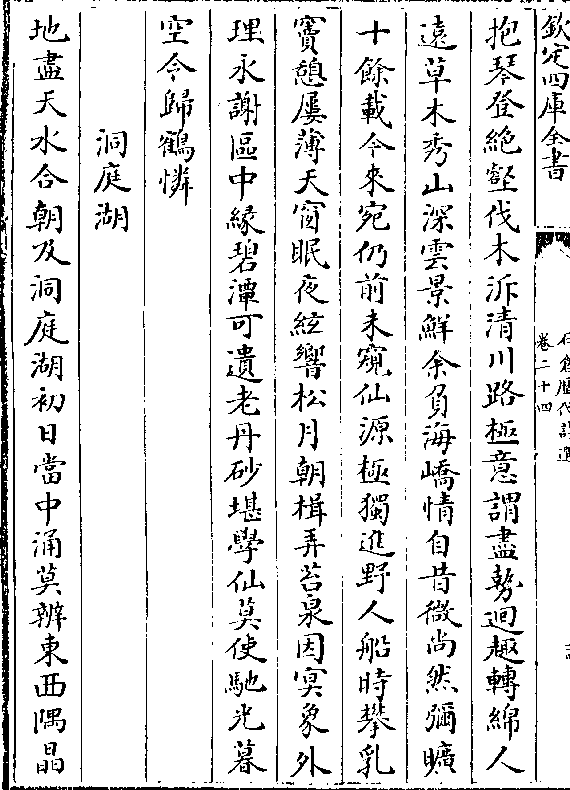 欽定四庫全書
卷二十四
抱琴登絶壑伐木泝清川路極意謂盡勢迴趣轉綿人
遠草木秀山深雲景鮮余負海嶠情自昔微尚然彌曠
十餘載今來宛仍前未窺仙源極獨進野人船時攀乳
竇憩屢薄天窗眠夜絃響松月朝楫弄苔泉因冥象外
理永謝區中縁碧潭可遺老丹砂堪學仙莫使馳光暮
空令歸鶴憐
洞庭湖
地盡天水合朝及洞庭湖初日當中涌莫辨東西隅晶